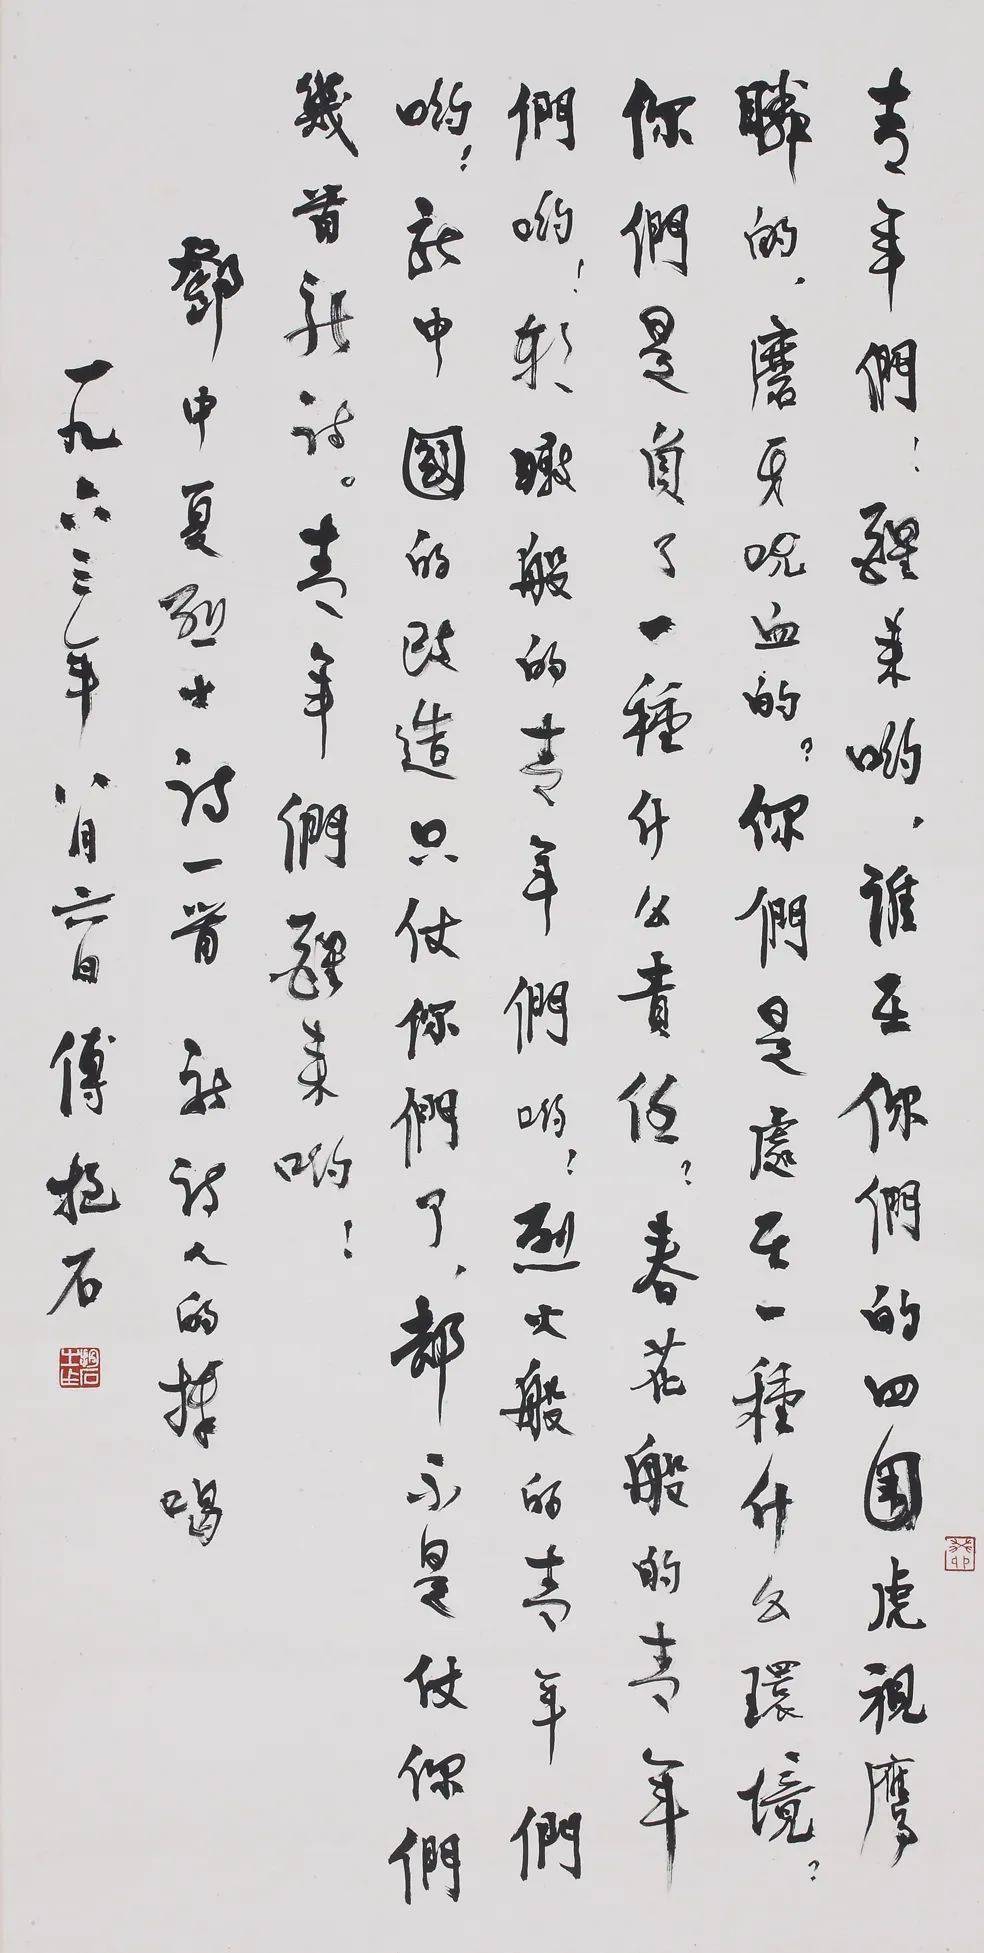 青年們！醒来喲，誰在你們的四圍虎視鷹
瞵的，磨牙吮血的？你們是處在一種什么環境？
你們是負了一種什么責任？春花般的青年
們喲！朝暾般的青年們喲！烈火般的青年們
喲！新中國的改造只仗你們了，卻不是仗你們
幾首新詩。青年們醒来喲！
鄧中夏烈士詩一首 新詩人的棒喝
一九六三年八月六日 傅抱石
癸卯